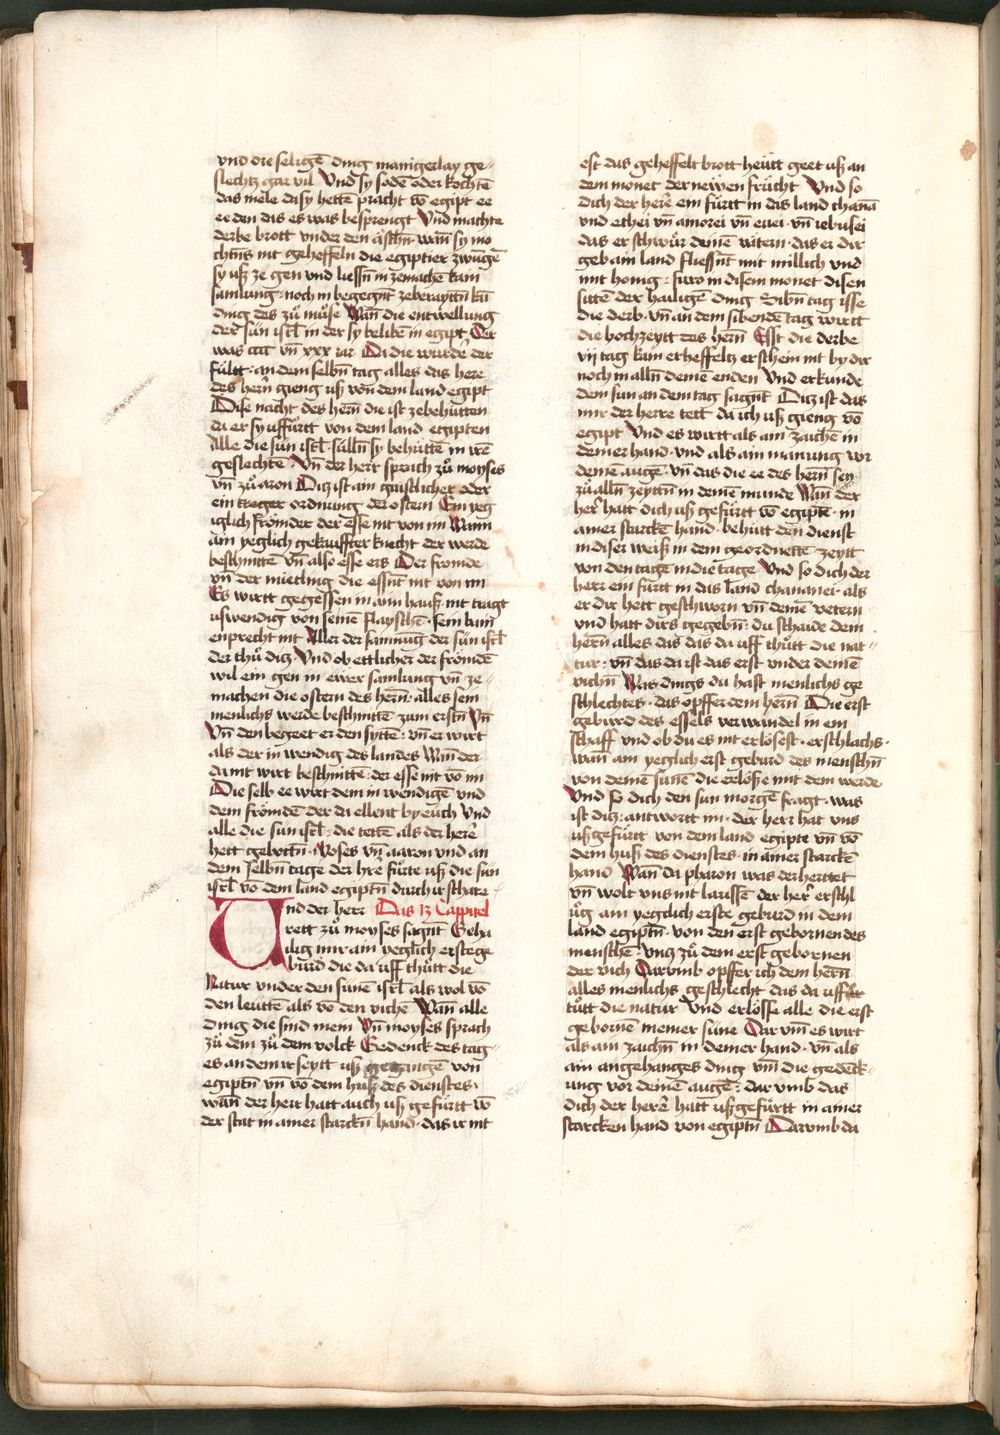 vnd die seligē ding manigerlay ge-
slechtz gar vil Vnd sy sodē oder kochtē
das mele da sy hettē pracht vō egipt ee
er den das es was besprengt Vnd machtē
derbe brott vnder den äschn̄ wan̄ sy mo
chtn̄s nit geheffeln die egiptier zwu̇ngē
sy usz ze gen vnd liessn̄t in ze machē kain
samlung · noch in begegnt zeberayttn̄ kai
ding des zů můse Wan̄ die entwellung
der sün isrl̄ in der sy belibē in egipt Der
was cccc vn̄ xxx iar Da die wurdē der
füllt · an dem selbn̄ tag alles das here
des hern̄ gieng usz von dem land egipt
Dise nacht des hern̄ die ist zebehütten
da er sy usfürtt von dem land egipten
Alle die sün isrl̄ · sülln̄ sy behüttē in irē
geslechtē · Vn̄ der herr sprach zů moyses
vn̄ zů aron Ditz ist am gaistlicher oder
ein ordnung der ostern Ein yeg
iglich frömder der esse nit von im Wann
ain yeglich gekauffter knecht der werde
beschnittē vn̄ also esse ers Der fromde
vn̄ der mietling die essn̄t nit von im
Es wirtt gegessen in aim hausz · nit tragt
uswendig von seinē flayschē · sein bain
enprecht nit Aller der samnu̇g der sün isrl̄
der thů ditz Vnd ob ettlicher der frömdē
wil ein gen in ewer samlung vn̄ ze-
machen die ostern des hern̄ · alles sein
menlichs werde beschnittē zum erstn̄ Vn̄
Vn̄ den begeet er den syttē : vn̄ er wirt
als der in wendig des landes Wan̄ der
da nit wirt beschnittē · der esse nit vō im
Die selb ee wirt dem in wendigē vnd
dem frömdē der da ellent by euch Vnd
alle die sün isrl̄ : die tettē als der herē
hett gebottn̄ · Moses vn̄ aaron vnd an
dem selbn̄ tage der hre fürte usz die sün
isrl̄ vō dem land egiptn̄ durch ir schare
Und der herr Das 13 Cappitel
rett zů moyses sagn̄t Geha
ilig mir ain yeglich erstege
burd die da uff thůtt die
Natur vnder den sünē isrl̄ als wol vō
den leuttē als vō den vichē Wan̄ alle
ding die sind mein Vn̄ moyses sprach
zů dem zů dem volck Gedenck des tag-
es an dem ir seytt usz gegangē von
egiptn̄ vn̄ vō dem husz des dienstes ·
wan̄ der herr hatt auch usz gefürtt vō
der stat in ainer starckn̄ hand · das ir nit
est das geheffelt brott heütt geet usz an
dem monet der newen frücht Vnd so
dich der herē ein fürtt in das land chanā
vnd ethei vn̄ amorei vn̄ euei · vn̄ iebusei
das er schwůr deinē vätern · das er dir
geb ain land fliessn̄t mit millich vnd
mit honig · füro in disem monet disen
sittē der hailigē ding Sibn̄ tag isse
die derb · vn̄ an dem sibendē tag wirtt
die hochzeytt des hern̄ Esst die derbe
vij tag kain erheffeltz erschein nit by dir
noch in alln̄ deinē enden Vnd erkunde
dem sun an dem tag sagn̄t Ditz ist das
mir der herre tett da ich usz gieng vō
egipt Vnd es wirtt als ain zaichē in
deiner hand · vnd als ain manung vor
deinē augē · vn̄ das die ee des hern̄ sey
zů alln̄ zeyttn̄ in deinē munde Wan̄ der
her̄ hatt dich usz gefürtt vō egiptē · in
ainer starckē hand · behütt den dienst
in diser weisz in dem geordnettē · zeytt
von den tagē in die tage Vnd so dich der
herr ein fürtt in das land chananei · als
er dir hett geschworn vn̄ deinē vetern
vnd hatt dirs gegebn̄ : du schaide dem
hern̄ alles das das da uff thůtt die nat-
tur : vn̄ das da ist das erst vnder deinē
vichn̄ Was dings du hast menlichs ge
schlechtes · das opffer dem hern̄ Die erst
geburd des essels verwandel in ein
schaff vnd ob du es nit erlösest · erschlachs ·
wan̄ ain yeglich erst geburd des menschn̄
von deinē sünē die erlösze mit dem werde
Vnd so dich dem sun morgē fragt · was
ist ditz : antwortt im · der herr hat vns
uszgefürtt von dem land egipte vn̄ vō
dem husz des dienstes · in ainer starckē
hand Wan̄ da pharon was derhertet
vn̄ wolt vns nit laussē der her̄ erschl
ůg ain yegclich erste geburd in dem
land egiptn̄ · von den erst gebornen des
menschē · vntz zů dem erst gebornen
der vich Darvmb opffer ich dem hern̄
alles menlichs geschlecht das da uff
tůtt die natur Vnd erlösse alle die erst
gebornē meiner süne Darvm̄ es wirt
als ain zaichn̄ in deiner hand · vn̄ als
ain angehanges ding vm̄ die gedeck-
ung vor deinē augē : dar vmb das
dich der herē hatt uszgefürtt in ainer
starcken hand von egiptn̄ Darvmb da